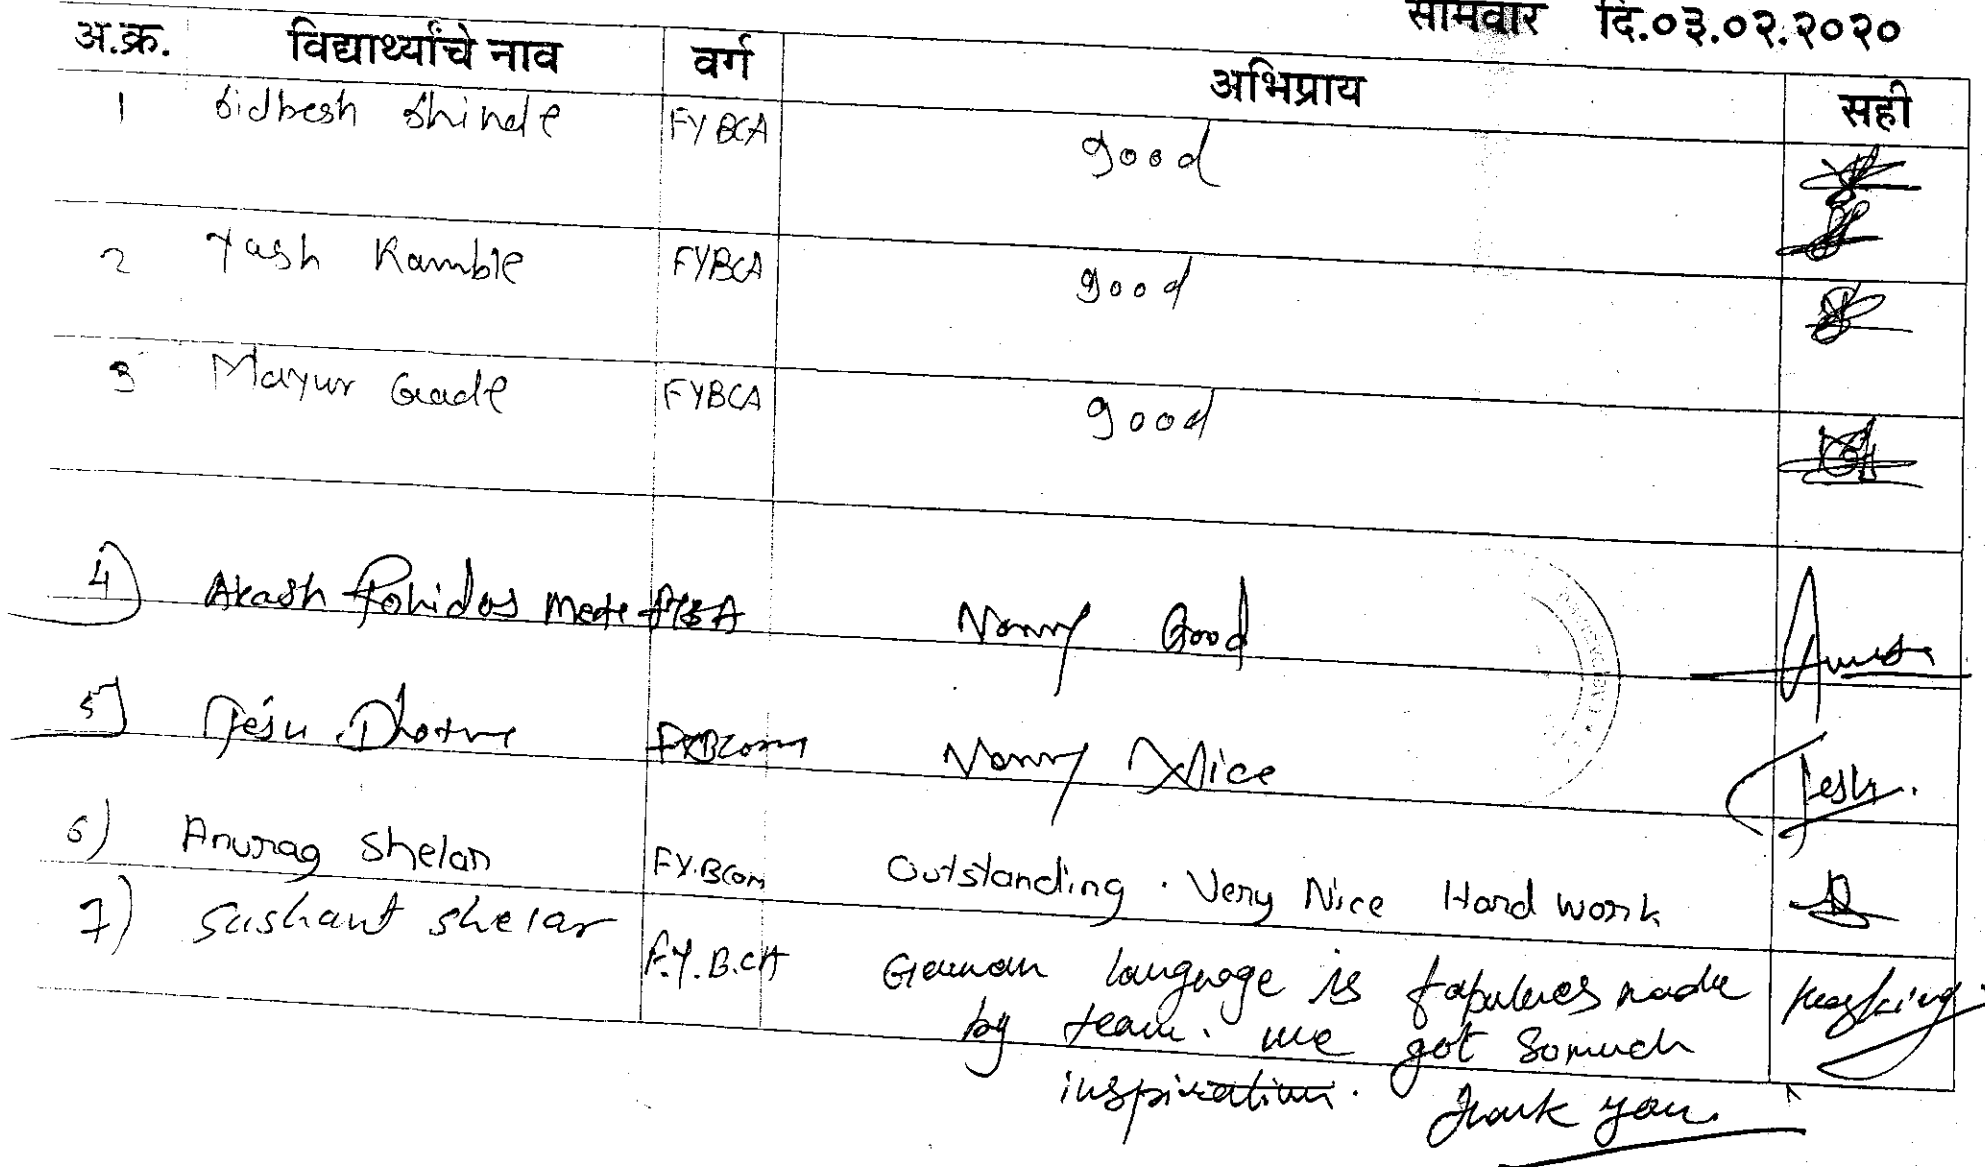 सोमवार दि.०३.०२.२०२०
अ.क्र. विद्यार्थ्यांचे नाव वर्ग अभिप्राय सही
1 Sidhesh Shinde FYBCA good
2 Yash Kamble FYBCA good
3 Mayur Gade FYBCA good
4) Akash Rohidas Mete FYBCA Very Good
5) Tesu Dhotre FYBCom Very Nice Tesh.
6) Anurag Shelar FY.BCom Outstanding. Very Nice Hard work
7) Sushant Shelar F.Y.B.CA German language is fapulues made
by team. we got Somuch
inspiration. Thank you.